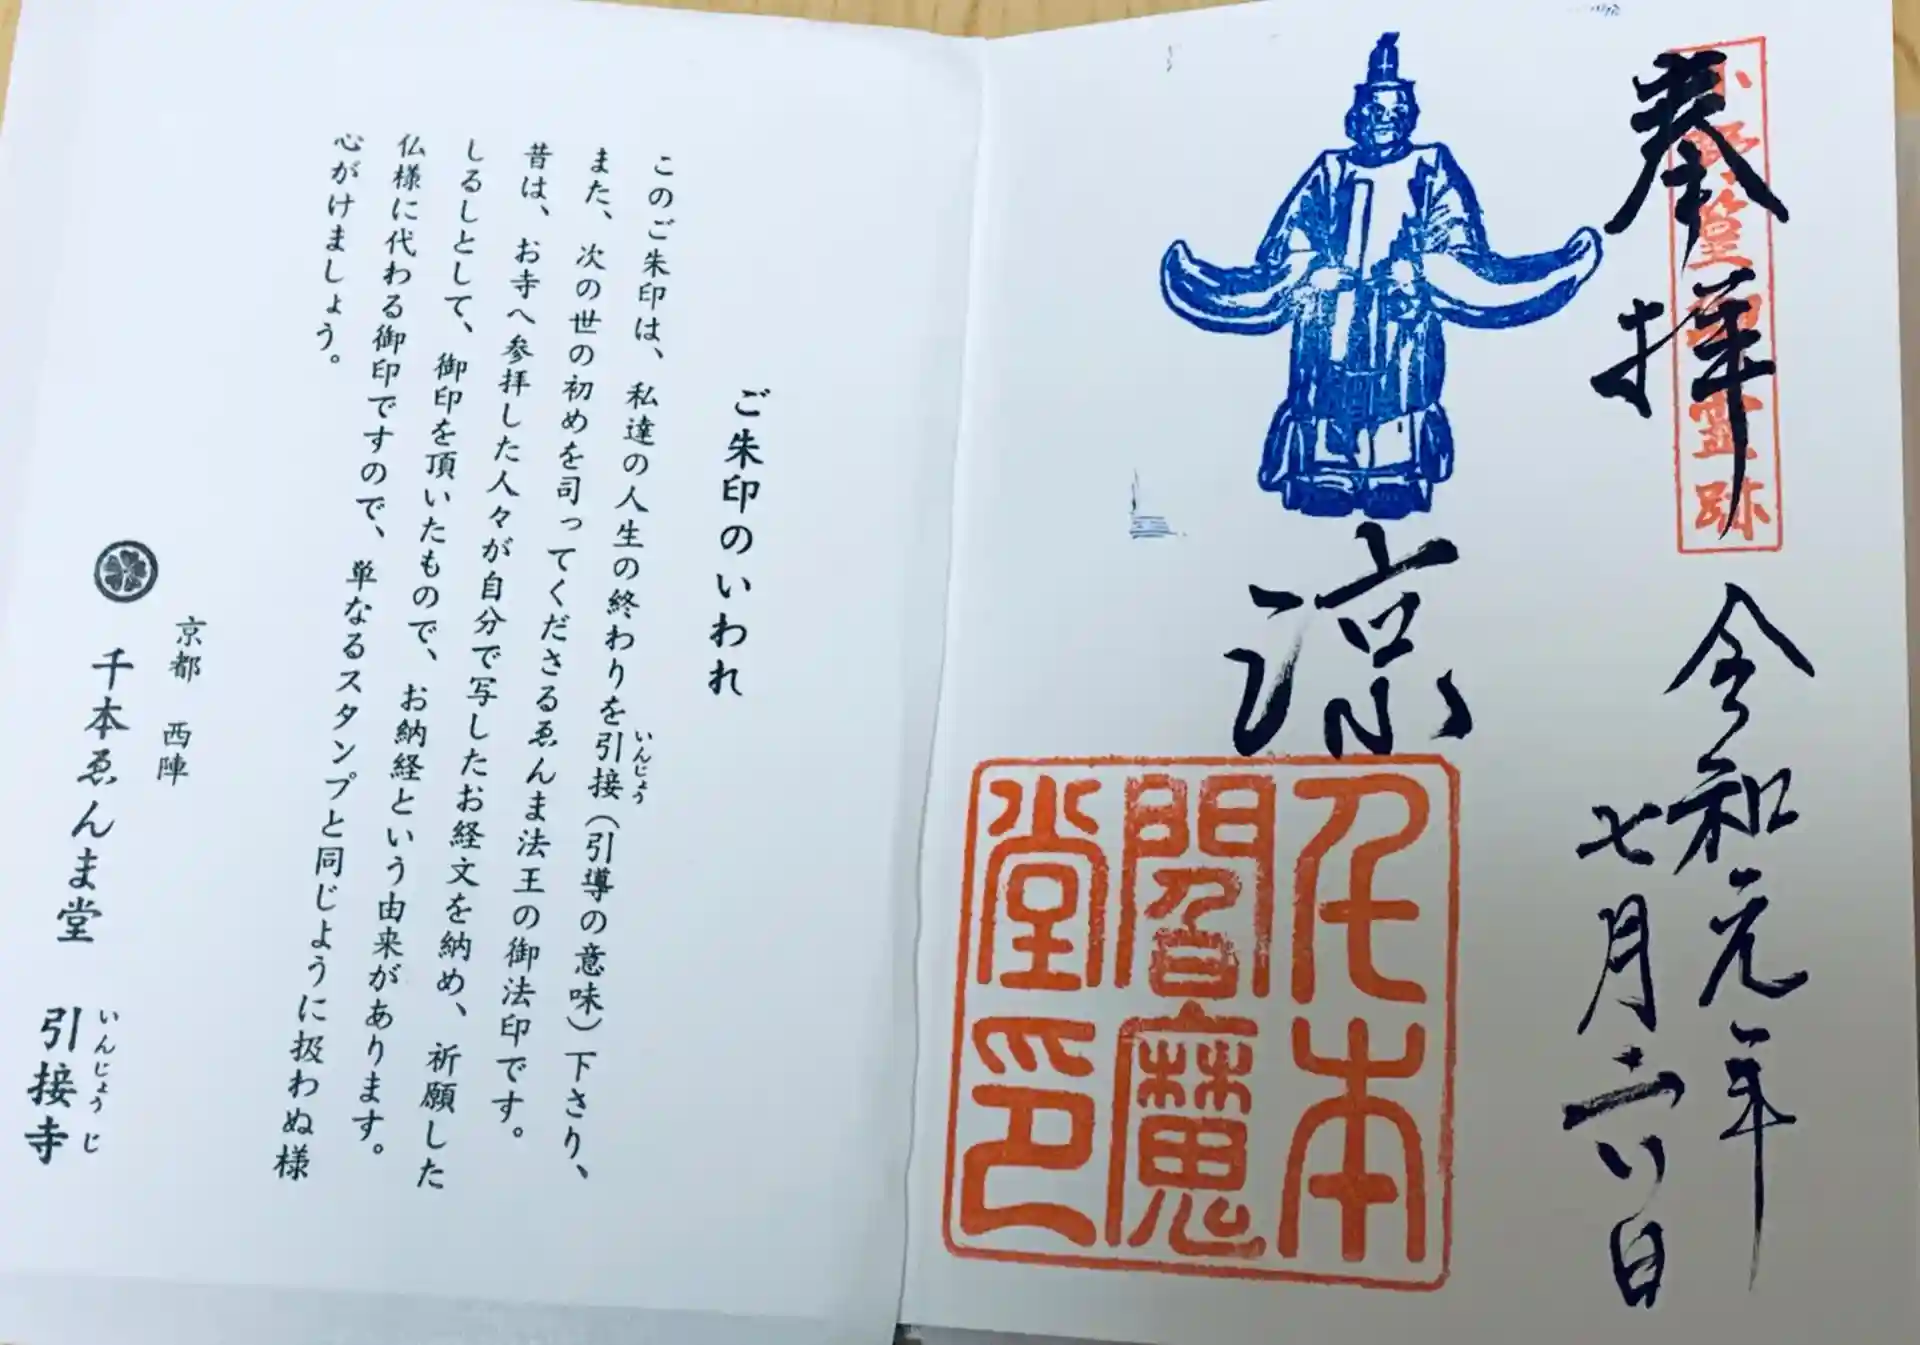 奉拝
小野篁卿霊跡
令和元年
七月六日
涼
千本
閻魔
堂印
ご朱印のいわれ
このご朱印は、私達の人生の終わりを引接（引導の意味）下さり、
いんじょう
また、次の世の初めを司ってくださるゑんま法王の御法印です。
昔は、お寺へ参拝した人々が自分で写したお経文を納め、祈願した
しるしとして、御印を頂いたもので、お納経という由来があります。
仏様に代わる御印ですので、単なるスタンプと同じように扱わぬ様
心がけましょう。
京都 西陣
千本ゑんま堂 引接寺
いんじょうじ